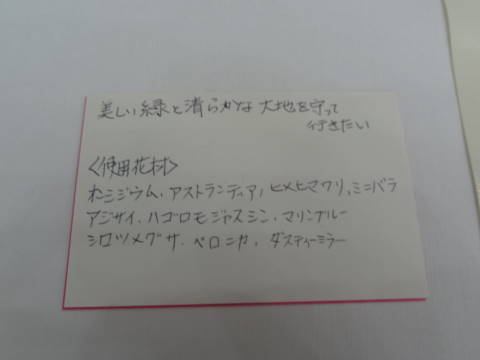 美しい緑と清らかな大地を守って
行きたい
<使用花材>
オンシジウム、アストランティア、ヒメヒマワリ、ミニバラ
アジサイ、ハゴロモジャスミン、マリンブルー
シロツメグサ、ベロニカ、ダスティーミラー